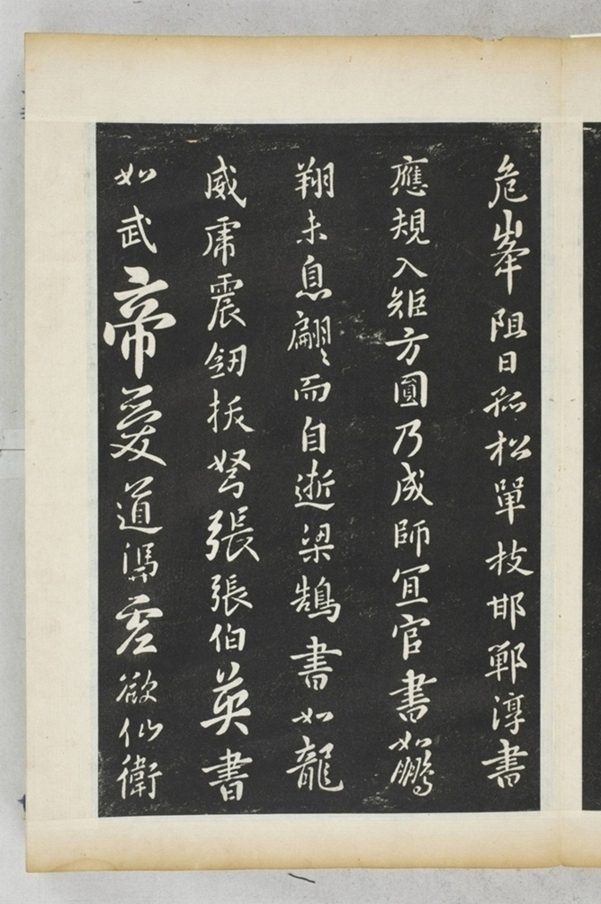 危峯阻日孤松單枝邯鄲淳書
應規入矩方圓乃成師冝官書如鵬
翔未息翩〻而自逝梁鵠書如龍
威虎震釰拔弩張張伯英書
如武帝愛道馮虛欲仙衛